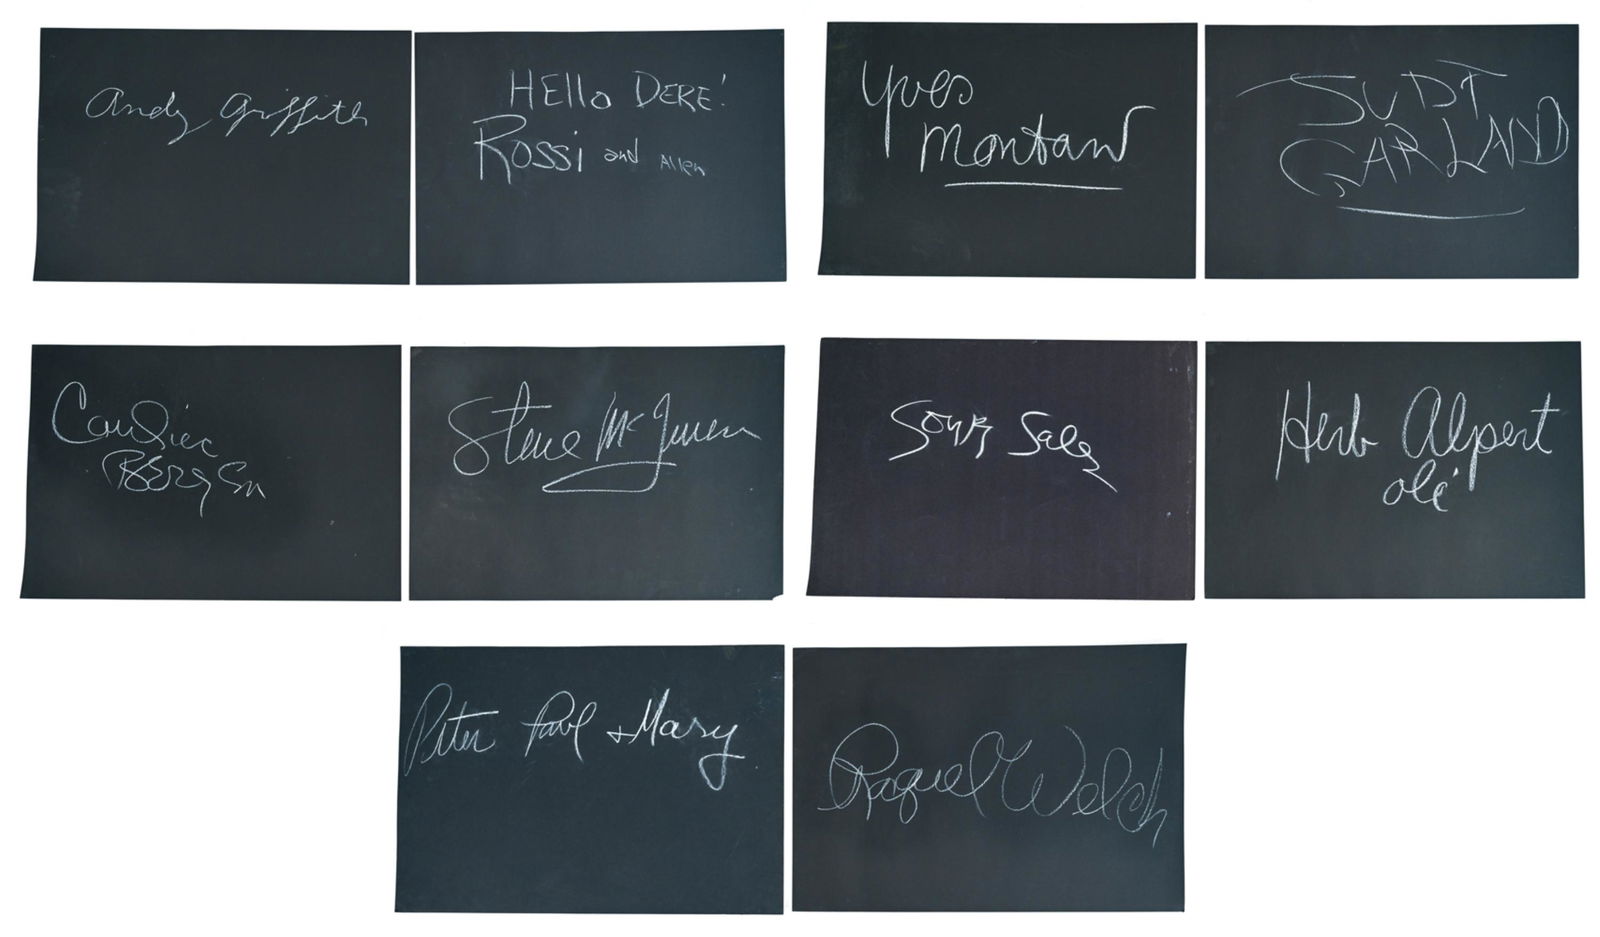 Andy Griffith
HEllo DERE!
Rossi and Allen
Yves
Montand
JUDY
GARLAND
Candice
Bergen
Steve McQueen
Soupy Sales
Herb Alpert
olé
Peter Paul + Mary
Raquel Welch